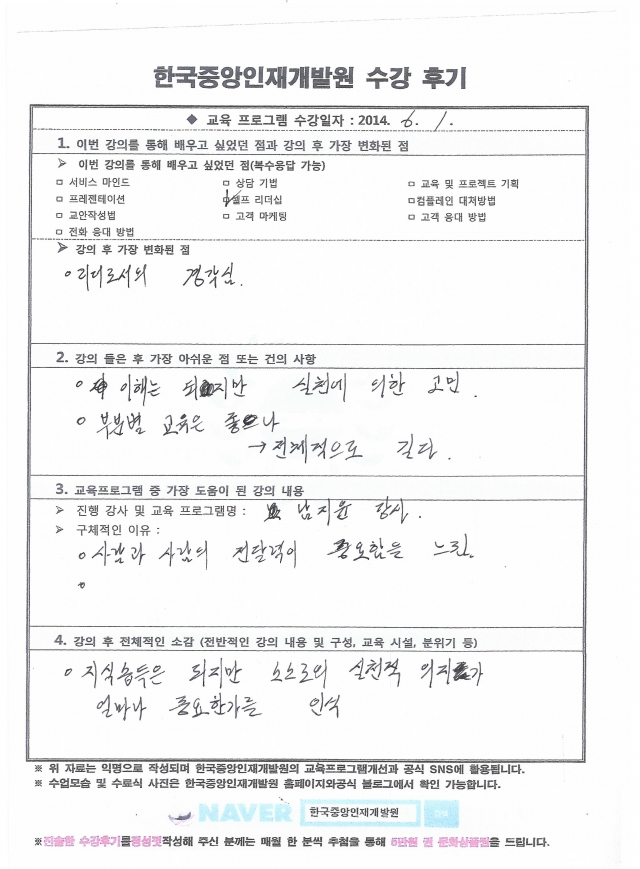 한국중앙인재개발원 수강 후기
◆ 교육 프로그램 수강일자 : 2014. 6. 1.
1. 이번 강의를 통해 배우고 싶었던 점과 강의 후 가장 변화된 점
➢ 이번 강의를 통해 배우고 싶었던 점(복수응답 가능)
□ 서비스 마인드 □ 상담 기법 □ 교육 및 프로젝트 기획
□ 프레젠테이션 □셀프 리더십 □컴플레인 대처방법
□ 교안작성법 □ 고객 마케팅 □ 고객 응대 방법
□ 전화 응대 방법
➢ 강의 후 가장 변화된 점
○ 리더로서의 경각심.
2. 강의 들은 후 가장 아쉬운 점 또는 건의 사항
○ 이해는 되지만 실천에 의한 고민.
○ 부분별 교육은 좋으나
→ 전체적으로 길다.
3. 교육프로그램 중 가장 도움이 된 강의 내용
➢ 진행 강사 및 교육 프로그램명 : 남지윤 강사.
➢ 구체적인 이유 :
○ 사람과 사람의 전달력이 중요함을 느낌.
○
4. 강의 후 전체적인 소감 (전반적인 강의 내용 및 구성, 교육 시설, 분위기 등)
○ 지식습득은 되지만 스스로의 실천적 의지가
얼마나 중요한가를 인식
※ 위 자료는 익명으로 작성되며 한국중앙인재개발원의 교육프로그램개선과 공식 SNS에 활용됩니다.
※ 수업모습 및 수료식 사진은 한국중앙인재개발원 홈페이지와공식 블로그에서 확인 가능합니다.
NAVER 한국중앙인재개발원 검색
※진솔한 수강후기를정성껏작성해 주신 분께는 매월 한 분씩 추첨을 통해 5만원 권 문화상품권을 드립니다.